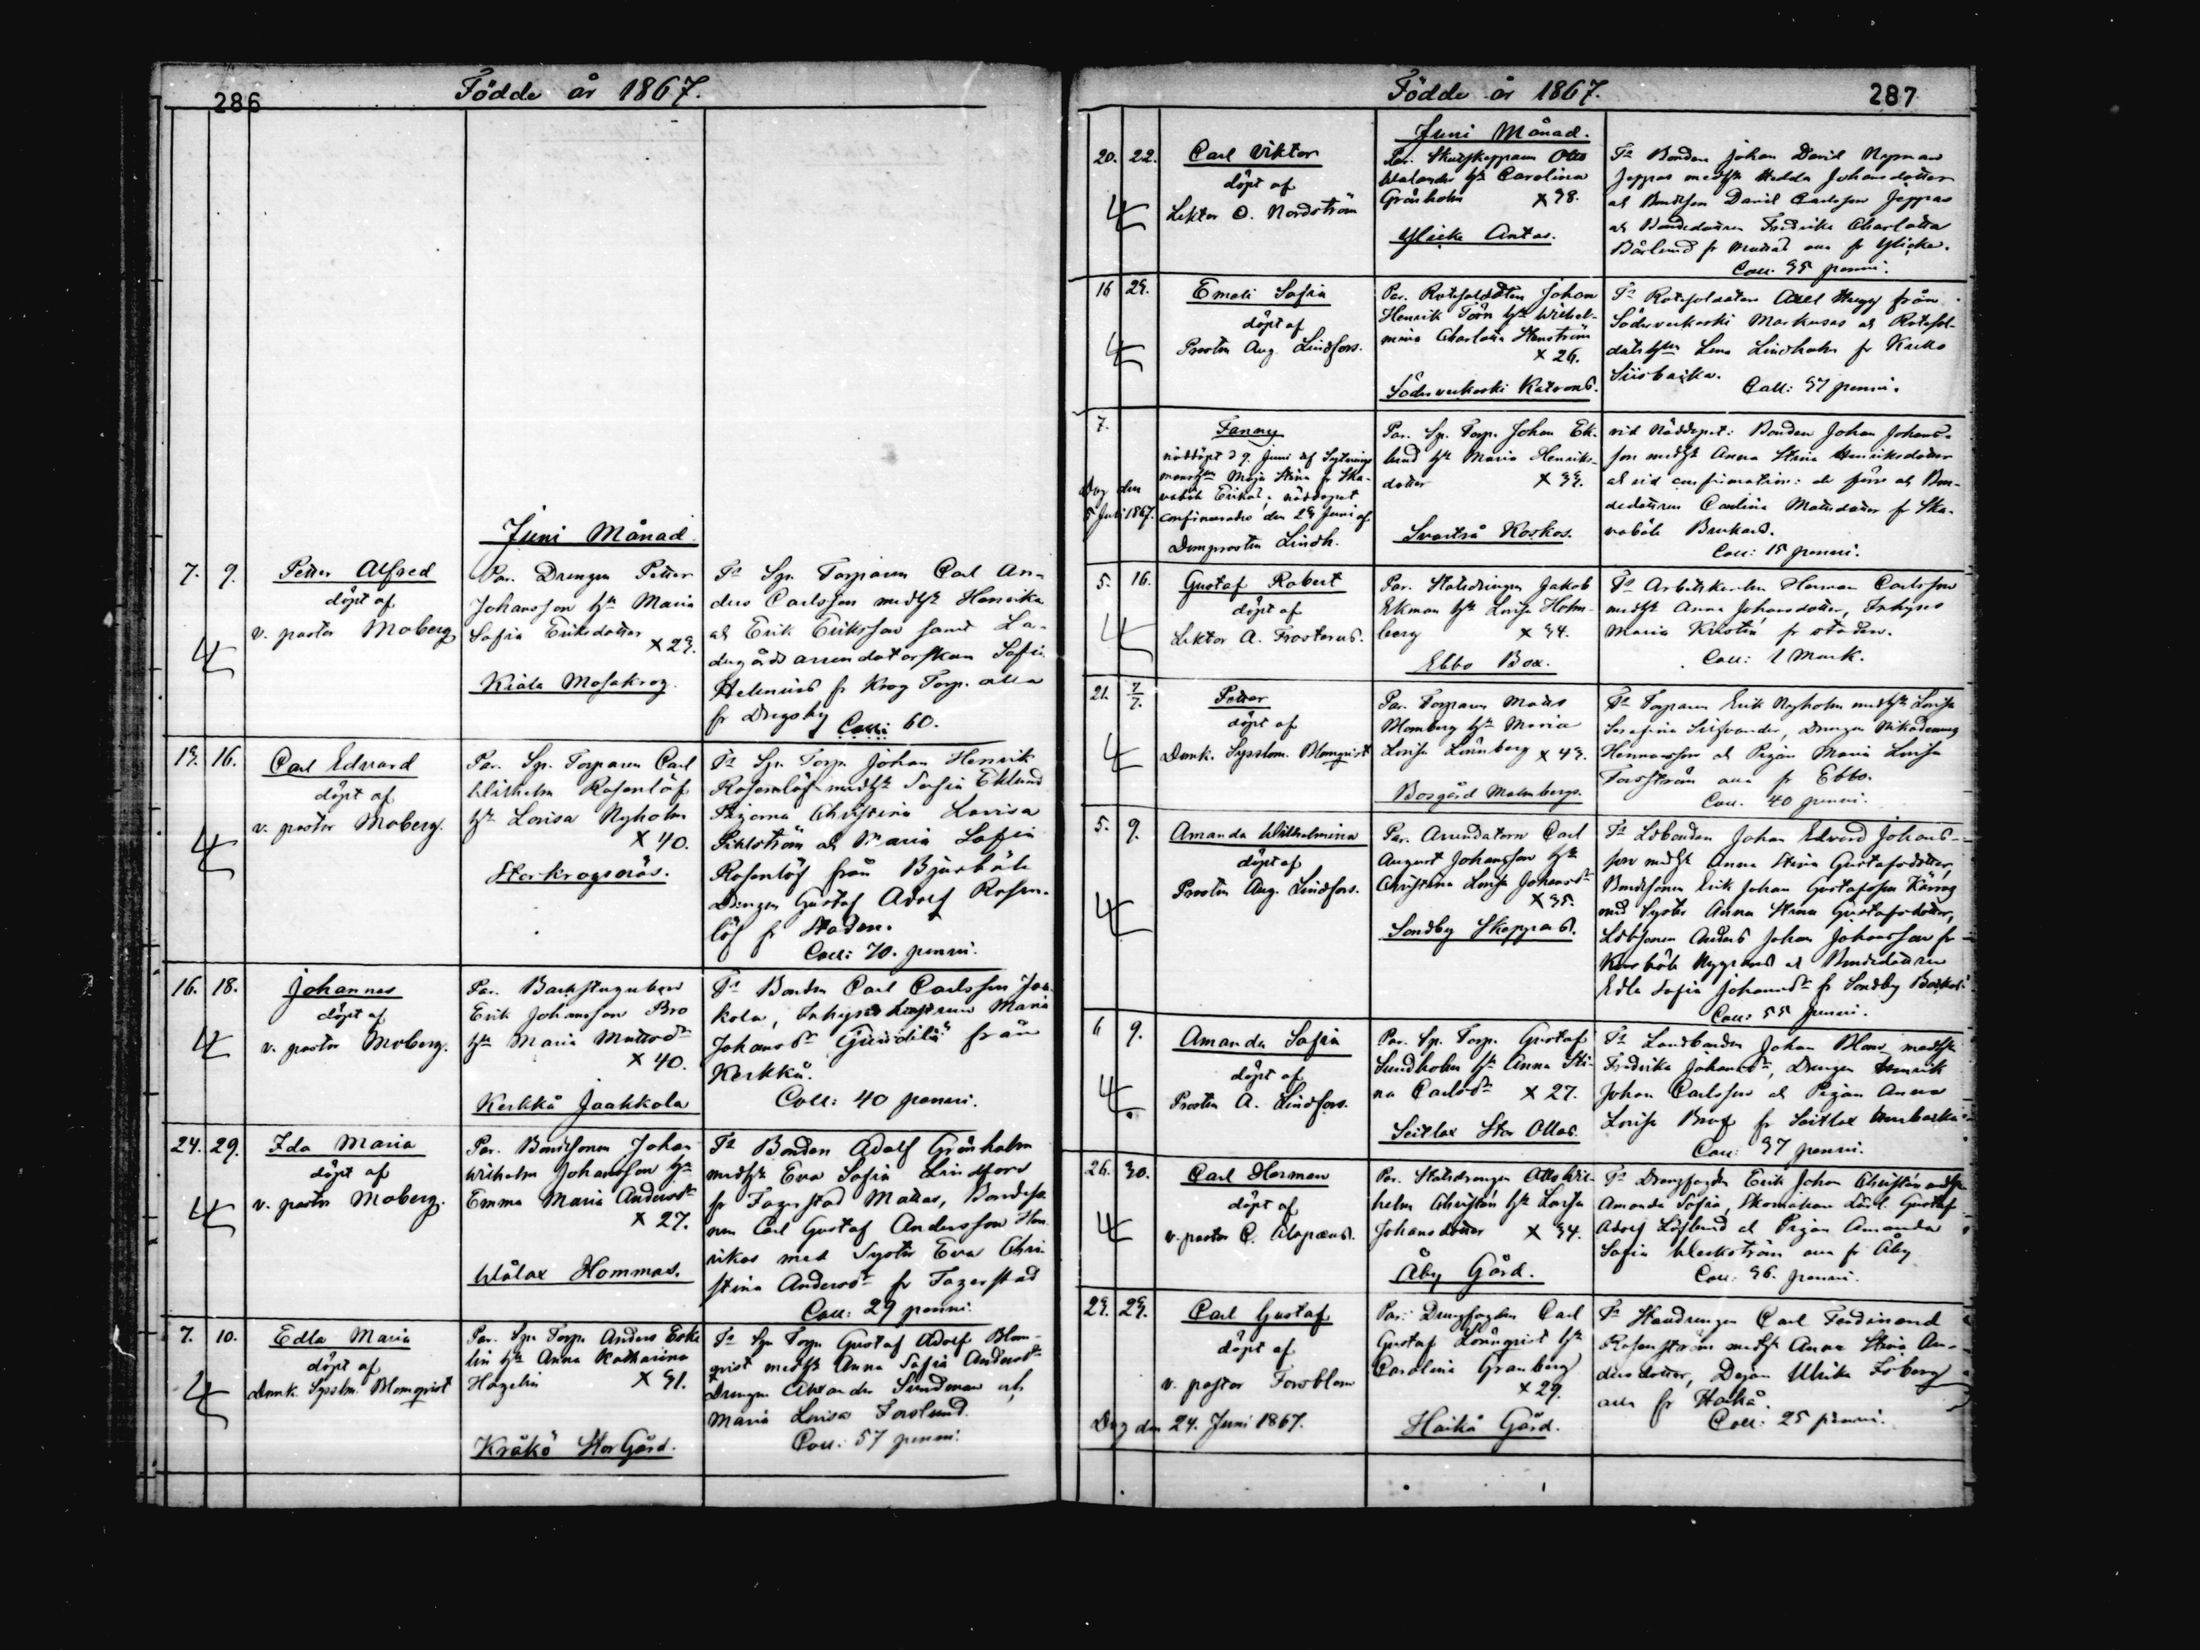 286
Födde år 1867.
Juni Månad.
7. 9. Petter Alfred
döpt af
v. pastor Moberg
Par. Drengen Petter
Johansson h: Maria
Sofia Eriksdotter
x 23.
Kiala Mosakrog.
Fa Sp. Torparen Carl An-
ders Carlsson med h: Henrika
och Erik Eriksson samt La-
dugårds arrendatorskan Sofia
Helenius fr Krog Torp. alla
fr Drägsby Coll: 60.
13. 16. Carl Edvard
döpt af
v. pastor Moberg.
Par. Sp. Torparen Carl
Wilhelm Rosenlöf
h: Lovisa Nyholm
x 40.
Storkrogsnäs.
Fa Sp. Torp. Johan Henrik
Rosenlöf med h: Sofia Eklund
Pigorna Christina Lovisa
och Maria Sofia
Rosenlöf från Bjurböle
Drengen Gustaf Adolf Rosen-
löf fr Staden.
Coll: 70. penni.
16. 18. Johannes
döpt af
v. pastor Moberg.
Par. Backstugukarl
Erik Johansson Bro
h: Maria Mattsdr
x 40.
Kerkkå Jaakkola
Fa Bonden Carl Carlsson Jaa-
kola, Inhyses hustrun Maria
Johansdr från
Kerkkå.
Coll: 40 penni.
24. 29. Ida Maria
döpt af
v. pastor Moberg.
Par. Bondsonen Johan
Wilhelm Johansson h:
Emma Maria Andersdr
x 27.
Wålax Hommas.
Fa Bonden Adolf Grönholm
med h: Eva Sofia Lindfors
fr Fagerstad Mattas, Bondeso-
nen Carl Gustaf Andersson Hen-
rikas med Syster Eva Chri-
stina Andersdr fr Fagerstad
Coll: 29 penni.
7. 10. Edla Maria
döpt af
Domk. Sysslm. Blomqvist
Par. Sp. Torp. Anders Eske-
lin h: Anna Katharina
Hagelin x 31.
Kråkö StorGård.
Fa Sp. Torp. Gustaf Adolf Blom-
qvist med h: Anna Sofia Andersdr
Drengen Alexander Sundman och
Maria Lovisa Forslund.
Coll: 57 penni.
Födde år 1867.
287
Juni Månad.
20. 22. Carl Viktor
döpt af
Lektor O. Nordström
Par. Skutskepparen Otto
Welander h: Carolina
Grönholm x 38.
Ylike Antas.
Fa Bonden Johan David Nyman
Jeppas med h: Hedda Johansdotter
och Bondson David Carlsson Jeppas
och Bondedottren Fredrika Charlotta
Bärlund fr Mattas alla fr Ylike.
Coll. 35 penni.
16 23. Emeli Sofia
döpt af
Prosten Aug. Lindfors.
Par. Rotesoldaten Johan
Henrik Törn h: Wilhel-
mina Charlotta Stenström
x 26.
Söderveckoski Katrons.
Fa Rotesoldaten Axel Hägg från
Söderveckoski Markusas och Rotesol-
datsh: Lena Lindholm fr Kullo
Coll: 37 penni.
7.
Fanny
nöddöpt d 9. Juni af Sytnings-
mansh: Maja Stina fr Ska-
vaböle Erikas. nöddopet
confirmerades den 23 Juni af
Domprosten Lindh.
Dog den
5 Juli 1867.
Par. Sp. Torp. Johan Ek-
lund h: Maria Henriks-
dotter x 33.
Svartså Koskos.
vid Nöddopet: Bonden Johan Johans-
son med h: Anna Stina Henriksdotter
och vid confirmation: de förre och Bon-
dedottren Carolina Mattsdotter fr Ska-
vaböle
Coll: 15 penni.
5. 16. Gustaf Robert
döpt af
Lektor A. Frosterus.
Par. Statsdrengen Jakob
Ekman h: Lovisa Holm-
berg x 34.
Ebbo Box.
Fa Arbetskarlen Herman Carlsson
med h: Anna Johansdotter, Inhyses
Maria Kristin fr staden.
Coll: 1 Mark.
21. 7/7. Petter
döpt af
Domk. Sysslom. Blomqvist
Par. Torparen Matts
Blomberg h: Maria
Lovisa Lönnberg x 43.
Bosgård Malmbergs.
Fa Torparen Erik Nyholm med h: Lovisa
Serafina , Drengen Nikodemus
Hermansson och Pigan Maria Lovisa
Forsström alla fr Ebbo.
Coll. 40 penni.
5. 9. Amanda Wilhelmina
döpt af
Prosten Aug. Lindfors.
Par. Arrendatorn Carl
August Johansson h:
Christina Lovisa Johansdr
x 35.
Sondby Skeppars.
Fa Ldbonden Johan Edvard Johans-
son med h: Anna Stina Gustafsdotter,
Bondsonen Erik Johan Gustafsson
med Syster Anna Stina Gustafsdotter,
Ldbsonen Anders Johan Johansson fr
Nygrens och Bondedottren
Edla Sofia Johansdr fr Sondby
Coll: 55 penni.
6 9. Amanda Sofia
döpt af
Prosten A. Lindfors.
Par. Sp. Torp. Gustaf
Sundholm h: Anna Sti-
na Carlsdr x 27.
Seitlax Stor Ollas
Fa Landbonden Johan med h:
Fredrika Johansdr, Drengen Henrik
Johan Carlsson och Pigan Anna
Lovisa fr Seitlax
Coll: 37 penni.
26. 30. Carl Herman
döpt af
v. pastor C. Alopæus.
Par. Statsdrengen Otto Wil-
helm Christian h: Lovisa
Johansdotter x 34.
Åby Gård.
Fa Drengfogden Erik Johan Christian med h:
Amanda Sofia, Skomakare lärl. Gustaf
Adolf Löflund och Pigan Amanda
Sofia Weckström alla fr Åby
Coll: 36. penni.
23. 23. Carl Gustaf
döpt af
v. pastor Forsblom
Dog den 24. Juni 1867.
Par: Drengfogden Carl
Gustaf Lönnqvist h:
Carolina Granberg
x 29.
Haikå Gård.
Fa Stalldrengen Carl Ferdinand
Rosenström med h: Anna Stina An-
dersdotter, Dejan Ulrika Foberg
alla fr Haikå.
Coll: 25 penni.